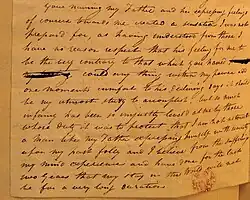 Your naming my Father and his expressing feelings
of concern towards me created a sensation I was not
prepared for, as having understood from those I
have no reason to suspect that his feeling for me to
be the very contrary to that which you have
could any thing within my power at
one moments impart to his declining days it should
be my utmost study to accomplish but so much
infamy has been so unjustly levelled at me by those
whose duty it was to protect that I am not at
a man like my Father expressing himself with
upon my past folly and I believe from the sufferings
my mind experience and have done for the last
two years that my stay in this World will not
be for a very long duration